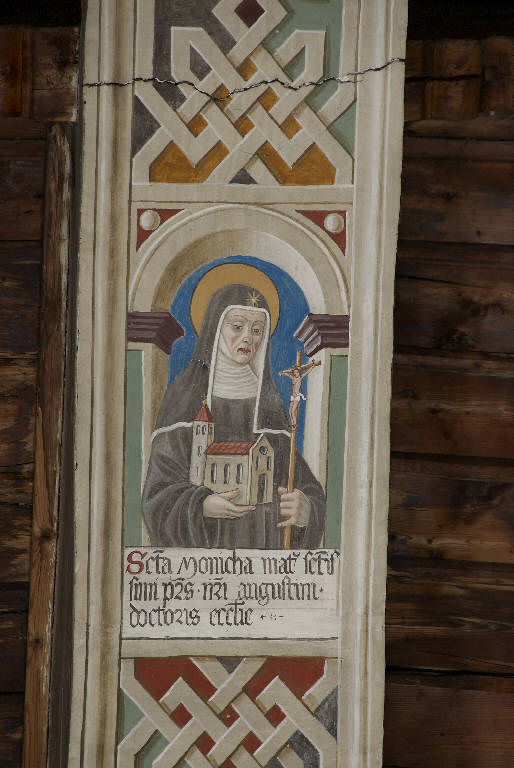 Sct̄a Monicha mat̄ sct̄is
simi p̄rs · nr̄i augustini ·
doctoris eccl̄ie